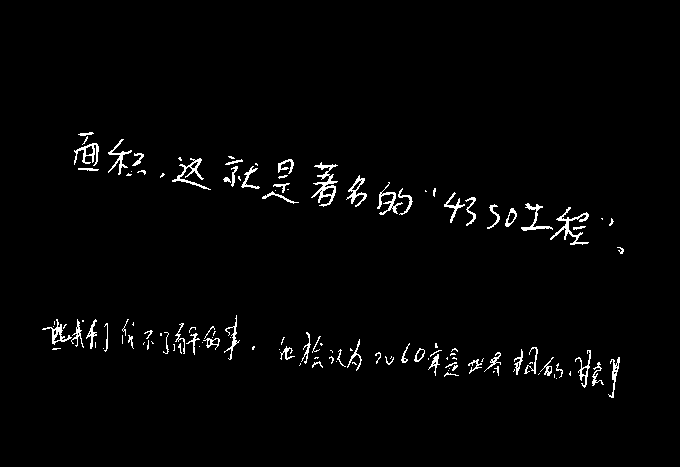 面积，这就是著名的“4350工程”。
些我们不了解的事，他会认为2060年是世界的